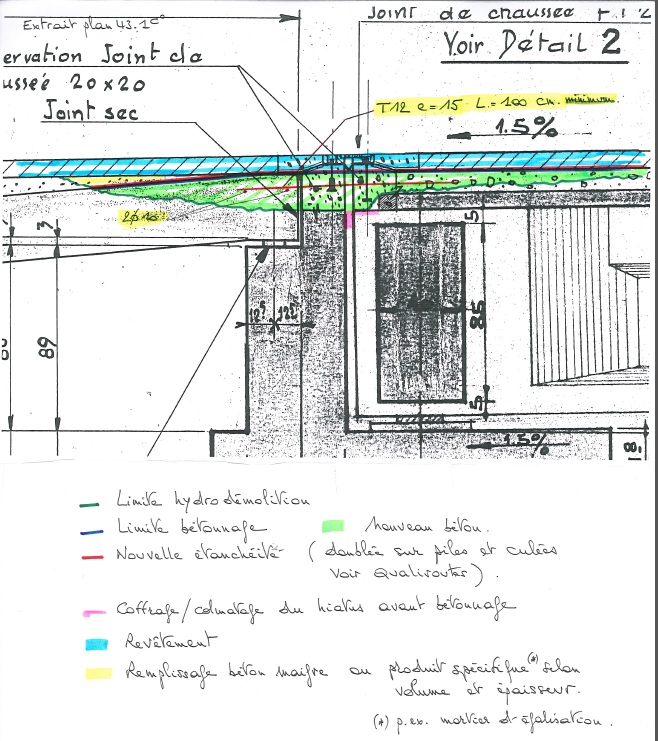 Extrait plan 43.1c°
Joint de chaussée
Voir Détail 2
ervation Joint de
ussée 20x20
Joint sec
T12 e=15 L=100 cm. minimum.
1.5%
3
5
12⁵ 12⁵
85
89
5
1.5%
18.
Limite hydrodémolition
Limite bétonnage
nouveau béton.
Nouvelle étanchéité (doublée sur piles et culées
voir Qualiroutes).
Coffrage/colmatage du hiatus avant bétonnage
Revêtement
Remplissage béton maigre ou produit spécifique(*) selon
volume et épaisseur.
(*) p.ex. mortier d'égalisation.